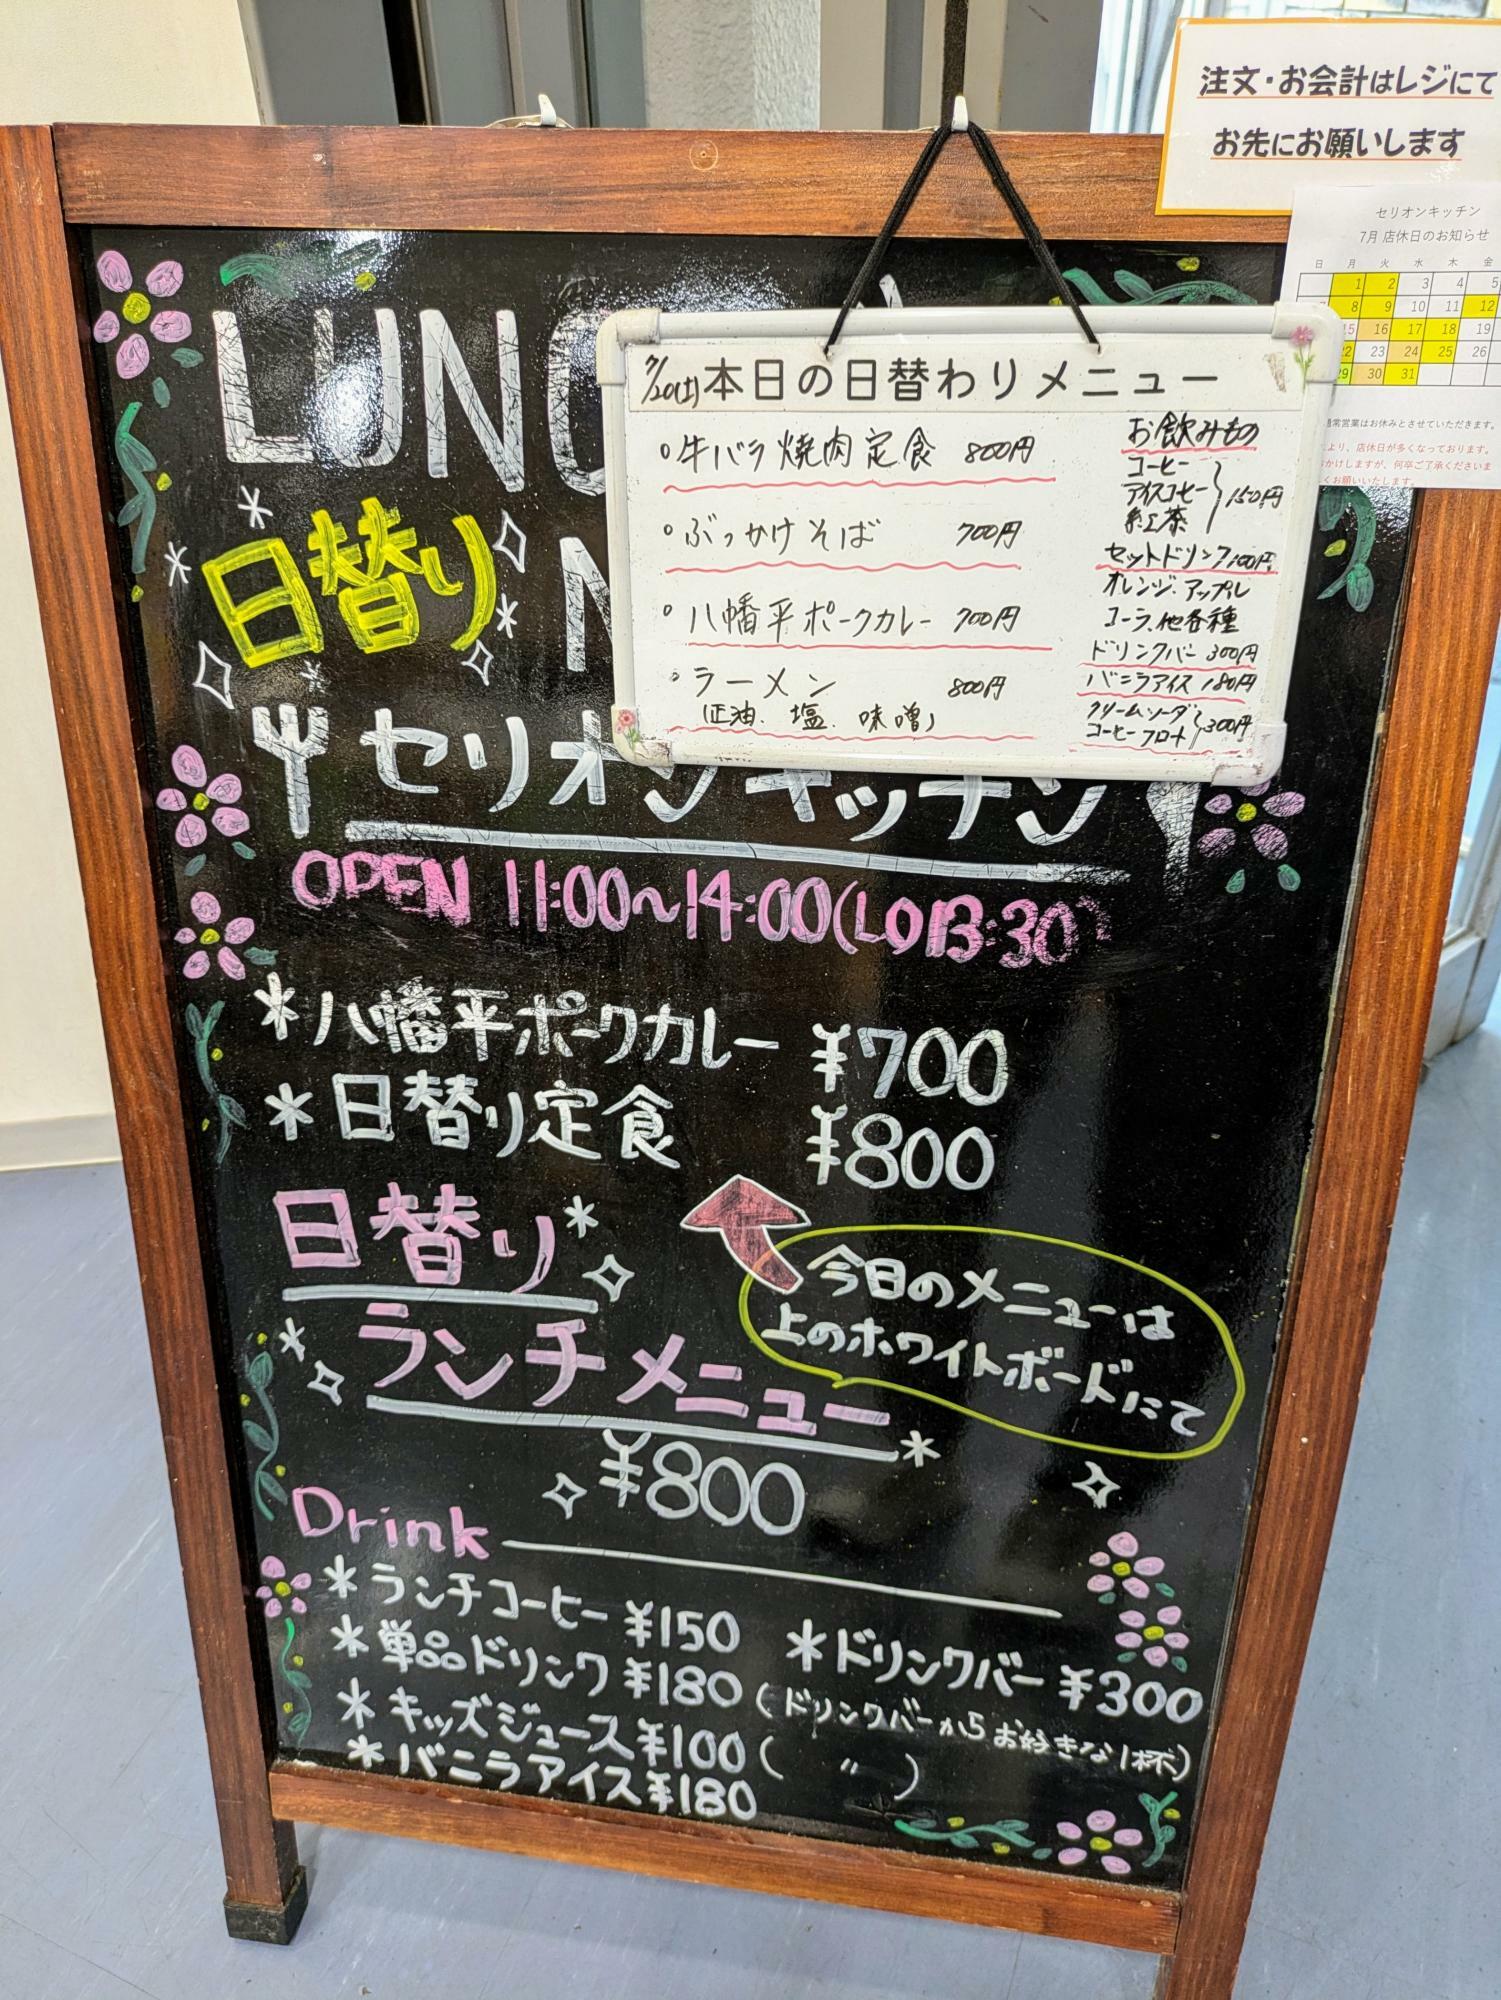 注文・お会計はレジにて
お先にお願いします
セリオンキッチン
7月 店休日のお知らせ
日 月 火 水 木 金
1 2 3 4 5
8 9 10 11 12
15 16 17 18 19
22 23 24 25 26
29 30 31
通常営業はお休みとさせていただきます。
より、店休日が多くなっております。
おかけしますが、何卒ご了承くださいま
くお願いいたします。
7/20(土)本日の日替わりメニュー
牛バラ焼肉定食 800円
ぶっかけそば 700円
八幡平ポークカレー 700円
ラーメン 800円
(正油、塩、味噌)
お飲みもの
コーヒー
アイスコーヒー
紅茶
150円
セットドリンク100円
オレンジ、アップル
コーラ、他各種
ドリンクバー 300円
バニラアイス 180円
クリームソーダ
コーヒーフロート
300円
LUNC
日替り
セリオンキッチン
OPEN 11:00〜14:00(LO13:30)
*八幡平ポークカレー ¥700
*日替り定食 ¥800
日替り
ランチメニュー
¥800
今日のメニューは
上のホワイトボードにて
Drink
*ランチコーヒー ¥150
*単品ドリンク ¥180
*キッズジュース ¥100
*バニラアイス ¥180
*ドリンクバー ¥300
(ドリンクバーからお好きな1杯)
( 〃 )